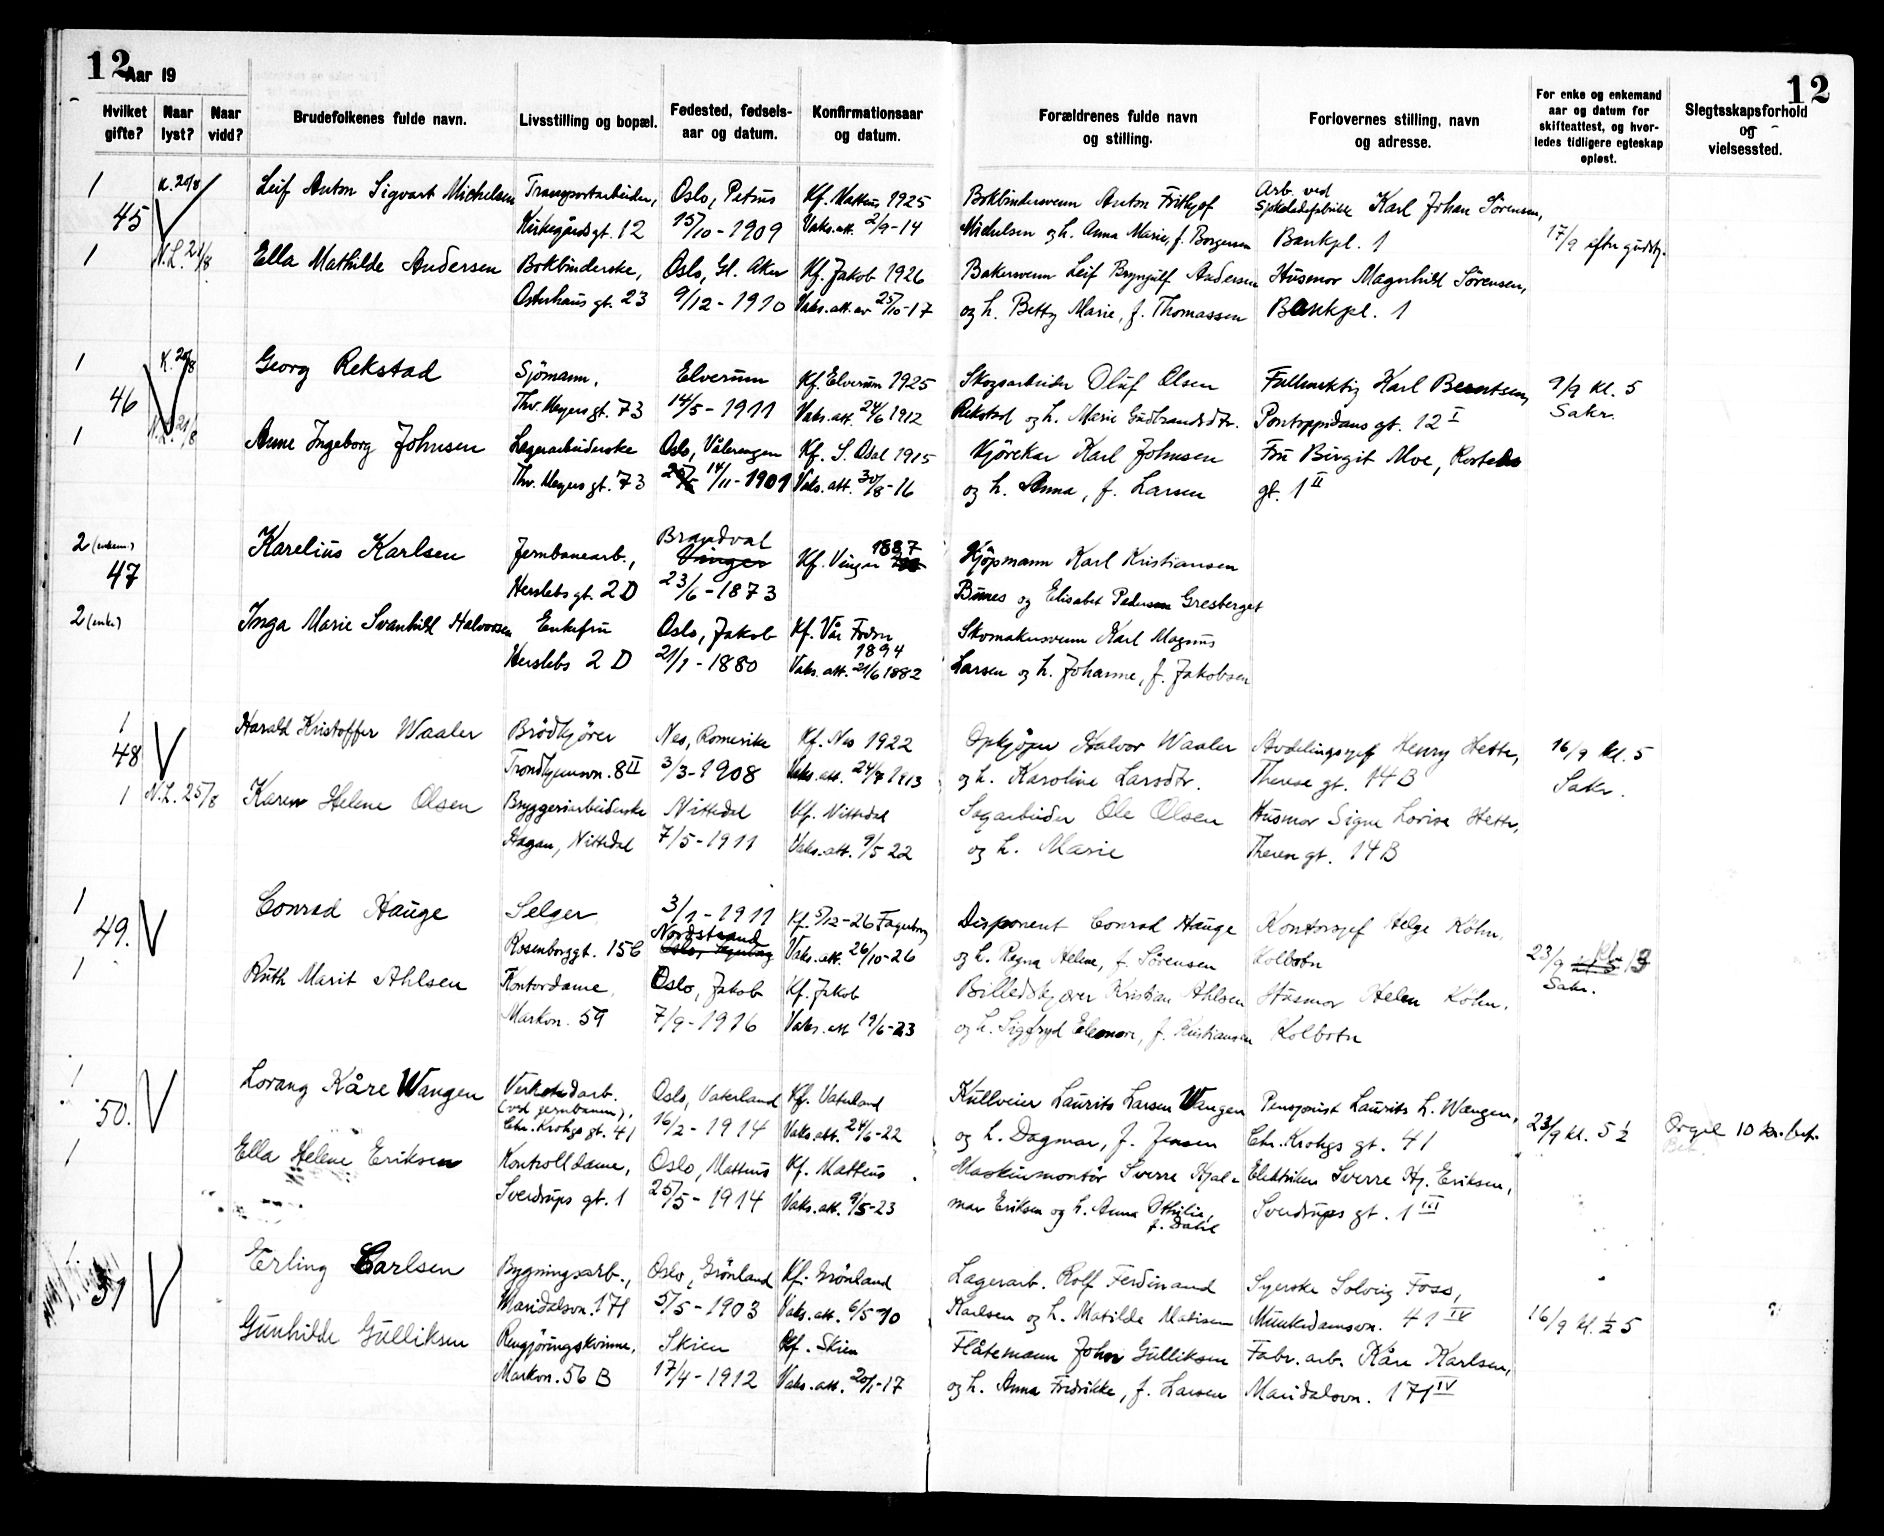 12 Aar 19
12
Hvilket gifte?
Naar lyst?
Naar vidd?
Brudefolkenes fulde navn.
Livsstilling og bopæl.
Fødested, fødsels-aar og datum.
Konfirmationsaar og datum.
Forældrenes fulde navn og stilling.
Forlovernes stilling, navn og adresse.
For enke og enkemand aar og datum for skifteattest, og hvor-ledes tidligere egteskap opløst.
Slegtsskapsforhold og vielsessted.
1 K. 20/8 Leif Anton Sigvart Michelsen Transportarbeider, Oslo, Petrus Kf. Matteus 1925 Bokbindersvenn Anton Frithjof Arb. ved Sjokoladefabrikk Karl Johan Sørensen,
45 Kirkegårdsgt. 12 15/10-1909 Vaks.att. 2/9-14 Michelsen og h. Anna Marie, f. Borgersen Bankpl. 1 17/9 efter gudstj.
1 N.L. 21/8 Ella Mathilde Andersen Bokbinderske, Oslo, Gl. Aker Kf. Jakob 1926 Bakersvenn Leif Brynjulf Andersen Husmor Magnhild Sørensen,
Osterhaus gt. 23 9/12-1910 Vaks.att. av 25/10-17 og h. Betty Marie, f. Thomassen Bankpl. 1
1 K. 20/8 Georg Rekstad Sjömann, Elverum Kf. Elverum 1925 Skogsarbeider Oluf Olsen Fullmektig Karl Berntsen, 9/9 kl. 5
46 Thv. Meyers gt. 73 14/5-1911 Vaks. att. 24/6 1912 Rekstad og h. Marie Gudbrandsdtr. Pontoppidans gt. 12 I Sakr.
1 N.L. 21/8 Anne Ingeborg Johnsen Lagerarbeiderske Oslo, Vålerengen Kf. S. Odal 1915 Kjörekar Karl Johnsen Fru Birgit Moe,
Thv. Meyers gt. 73 14/11-1901 Vaks. att. 30/8-16 og h. Anna, f. Larsen gt. 1 II
2 (enkem.) Karelius Karlsen Jernbanearb., Brandval Vinger Kf. Vinger 1887 Kjöpmann Karl Kristiansen
47 Herslebs gt. 2 D 23/6-1873 Bunes og Elisabet Pedersen Gresberget
2 (enke) Inga Marie Svanhild Halvorsen Enkefru Oslo, Jakob Kf. Vår Frelser 1894 Skomakersvenn Karl Magnus
Herslebs 2 D 21/1-1880 Vaks. att. 21/6 1882 Larsen og h. Johanne, f. Jakobsen
1 Harald Kristoffer Waaler Brödkjörer Nes, Romerike Kf. Nes 1922 Opkjöper Halvor Waaler Avdelingssjef Henry Hette, 16/9 kl. 5
48 Trondhjemsvn. 8 II 3/3-1908 Vaks. att. 24/7 1913 og h. Karoline Larsdtr. Therese gt. 14 B Sakr.
1 N.L. 25/8 Karen Helene Olsen Bryggeriarbeiderske Nittedal Kf. Nittedal Sagarbeider Ole Olsen Husmor Signe Lovise Hette,
Hagan, Nittedal 7/5-1911 Vaks. att. 9/5-22 og h. Marie Therese gt. 14 B
1 Conrad Hauge Selger 3/1-1911 Kf. 5/12-26 Fagerborg Disponent Conrad Hauge Kontorsjef Helge Köhn,
49. Rosenborggt. 15 C Nordstrand Oslo, Fagerborg Vaks. att. 26/10-26 og h. Ragna Helene, f. Sörensen Kolbotn 23/9 kl. 5
1 Ruth Marit Ahlsen Kontordame, Oslo, Jakob Kf. Jakob Billedskjærer Kristian Ahlsen Husmor Helen Köhn, Sakr.
Markvn. 59 7/9-1916 Vaks. att. 19/6-23 og h. Sigfryd Eleonore, f. Kristiansen Kolbotn
1 Lorang Kåre Wangen Verkstedarb. (ved jernbanen), Oslo, Vaterland Kf. Vaterland Kullveier Laurits Larsen Wangen Pensjonist Laurits L. Wangen,
50. Chr. Krohgs gt. 41 16/2-1914 Vaks. att. 24/6-22 og h. Dagmar, f. Jensen Chr. Krohgs gt. 41 23/9 kl. 5 1/2 Orgel 10 kr. bet.
1 Ella Helene Eriksen Kontrolldame, Oslo, Matteus Kf. Matteus Maskinmontör Sverre Hjal- Elektriker Sverre Hj. Eriksen,
Sverdrups gt. 1 25/5-1914 Vaks. att. 9/5-23 mar Eriksen og h. Anna Othilie, f. Dahl Sverdrups gt. 1 III
1 Erling Carlsen Bygningsarb., Oslo, Grönland Kf. Grönland Lagerarb. Rolf Ferdinand Syerske Solveig Foss,
51 Maridalsvn. 171 5/5-1903 Vaks. att. 6/5-10 Karlsen og h. Matilde Matisen Munkedamsvn. 41 IV 16/9 kl. 1/2 5
Gunhilde Gulliksen Rengjöringskvinne, Skien Kf. Skien Flåtemann John Gulliksen Fabr. arb. Kåre Karlsen,
Markvn. 56 B 17/4-1912 Vaks. att. 20/1-17 og h. Anna Fredrikke, f. Larsen Maridalsvn. 171 IV